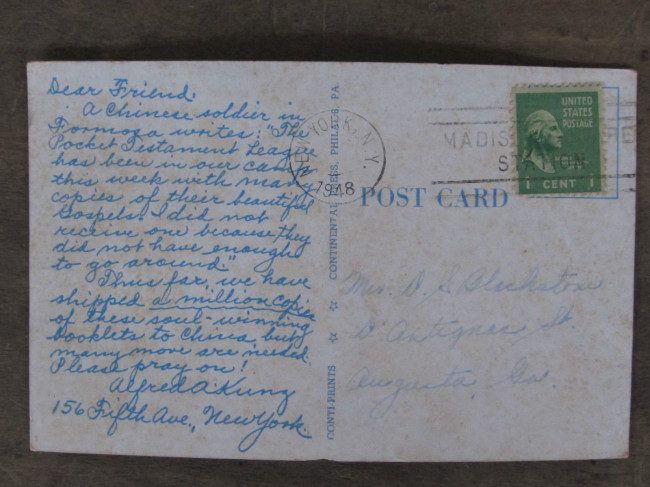 Dear Friend:
A Chinese soldier in
Formosa writes: "The
Pocket Testament League
has been in our camp
this week with many
copies of their beautiful
Gospels. I did not
receive one because they
did not have enough
to go around."
Thus far, we have
shipped a million copies
of these soul-winning
booklets to China, but
many more are needed.
Please pray on!
Alfred A. Kunz
156 Fifth Ave., New York.
CONTI-PRINTS ☆ ☆ CONTINENTAL SALES, PHILA. 8, PA.
NEW YORK, N.Y.
1948
MADIS
STATION
UNITED
STATES
POSTAGE
1 CENT 1
POST CARD
Mrs. D. S. Blackstone
St.
Augusta, Ga.